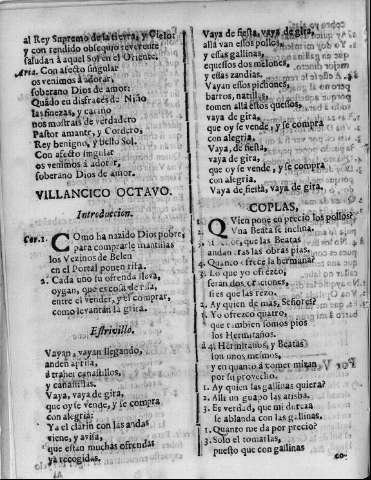 al Rey Supremo de la tierra, y Cielo:
y con rendido obsequio reverente
saludan à aquel Sol en el Oriente.
Aria. Con afecto singular
os venimos à adorar,
soberano Dios de amor:
Quãdo en disfraces de Niño
las finezas, y cariño
nos mostrais de verdadero
Pastor amante, y Cordero,
Rey benigno, y bello Sol.
Con afecto singular
os venimos à adorar,
soberano Dios de amor.
VILLANCICO OCTAVO.
Introduccion.
Cor. 1. COmo ha nazido Dios pobre,
para comprarle mantillas
los Vezinos de Belen
en el Portal ponen rifa.
2. Cada uno su ofrenda lleva,
oygan, que es cosa de risa,
entre el vender, y el comprar,
como levantàn la grita.
Estrivillo.
Vayan, vayan llegando,
anden aprisa,
à traher canastillos,
y canastillas.
Vaya, vaya de gira,
que oy se vende, y se compra
con alegria:
Ya el clarin con las andas
viene, y avisa,
que estan muchas ofrendas
ya recogidas.
Vaya de fiesta, vaya de gira,
allà van essos pollos,
y essas gallinas,
aquessos dos melones,
y essas zandias.
Vayan essos pichones,
barros, natillas,
tomen allà estos quesos,
vaya de gira,
que oy se vende, y se compra
con alegria.
Vaya, de fiesta,
vaya de gira,
que oy se vende, y se compra
con alegria,
Vaya de fiesta, vaya de gira.
COPLAS,
1. QUien pone en precio los pollos?
2. Una Beata se inclina.
que las Beatas
andan tras las obras pias.
4. Quanto ofrece la hermana?
3. Lo que yo ofrezco,
seràn dos oraciones,
tres que las rezo.
2. Ay quien dè mas, Señores?
1. Yo ofrezco quatro,
que tambien somos pios
los Hermitaños.
à 4. Hermitaños, y Beatas
son unos mesmos,
y en quanto à comer miran
por su provecho.
1. Ay quien las gallinas quiera?
2. Alli un guapo las atisba.
3. Es verdad, que mi dureza
se ablanda con las gallinas.
1. Quanto me dà por precio?
3. Solo el tomarlas,
puesto que con gallinas
co-